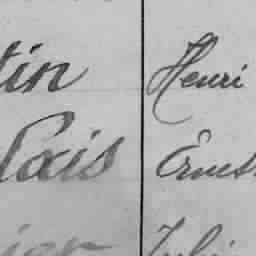 tin Henri
lais Ernest
ier Juli